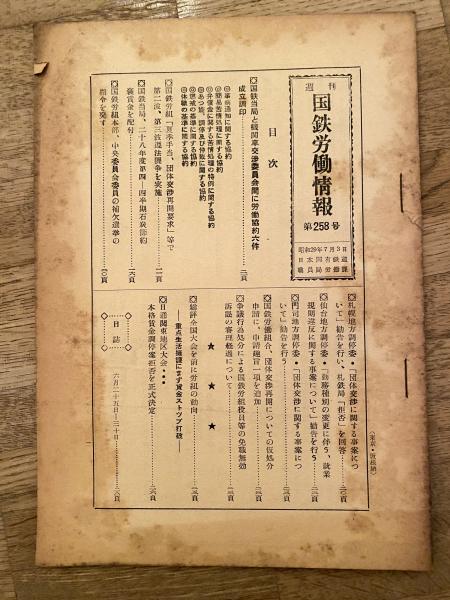 週刊
国鉄労働情報
第258号
昭和29年7月3日
日本国有鉄道
職員局労働課
目次
◎国鉄当局と機関車交渉委員会間に労働協約六件
成立調印
◎事前通知に関する協約
◎簡易苦情処理に関する協約
◎弁償金に関する苦情処理の特例に関する協約
◎あつ旋、調停及び仲裁に関する協約
◎懲戒の基準に関する協約
◎休職の基準に関する協約
◎国鉄労組「夏季手当、団体交渉再開要求」等で
第二波、第三波違法闘争を実施
◎国鉄当局、二十八年度第四―四半期石炭節約
褒賞金を配付
◎国鉄労組本部、中央委員会委員の補欠選挙の
指令を発す
（東京・仮綴納）
◎札幌地方調停委・「団体交渉に関する事案につ
いて」勧告を行い、札鉄局「拒否」を回答
◎仙台地方調停委・「勤務種別の変更に伴う、就業
規則違反に関する事案について」勧告を行う
◎門司地方調停委・「団体交渉に関する事案につ
いて」勧告を行う
◎国鉄労働組合、団体交渉再開についての仮処分
申請に、申請趣旨一項を追加
◎争議行為処分による国鉄労組役員等の免職無効
訴訟の審理経過について
★ ★ ★
◎総評全国大会を前に労組の動向
―重点生活擁護にまず賃金ストップ打破―
◎日通関東地区大会・・・
本格賃金調停案拒否を正式決定
日誌
六月二十五日―三十日